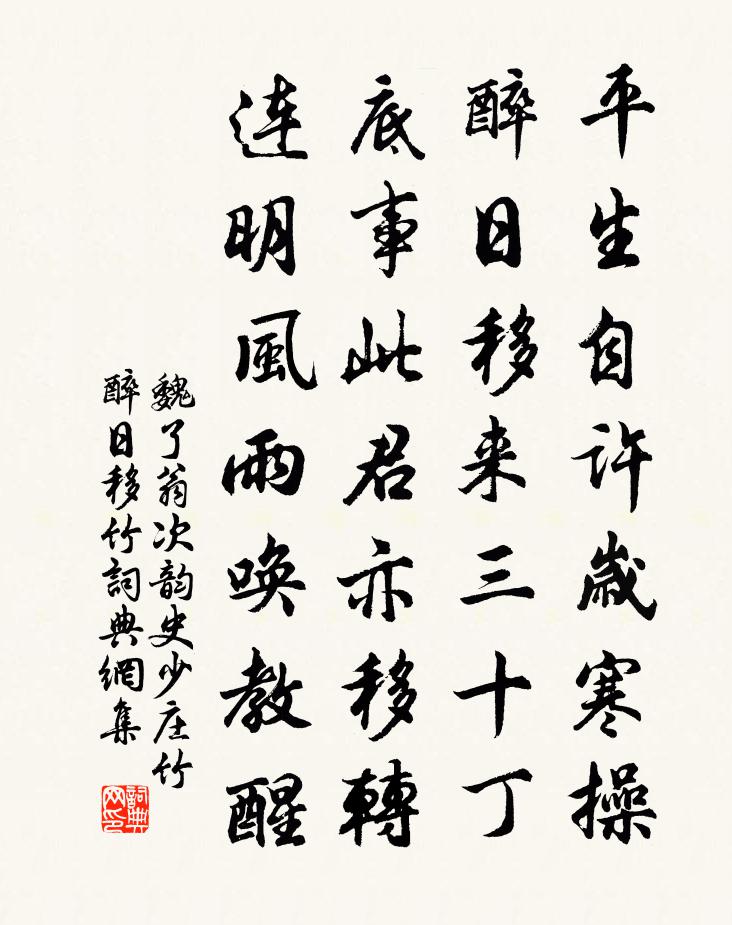 平生自許歲寒操
醉日移来三十丁
底事此君亦移轉
連明風雨喚教醒
魏了翁次韵史少庄竹
醉日移竹詞典網集
詞典
网印